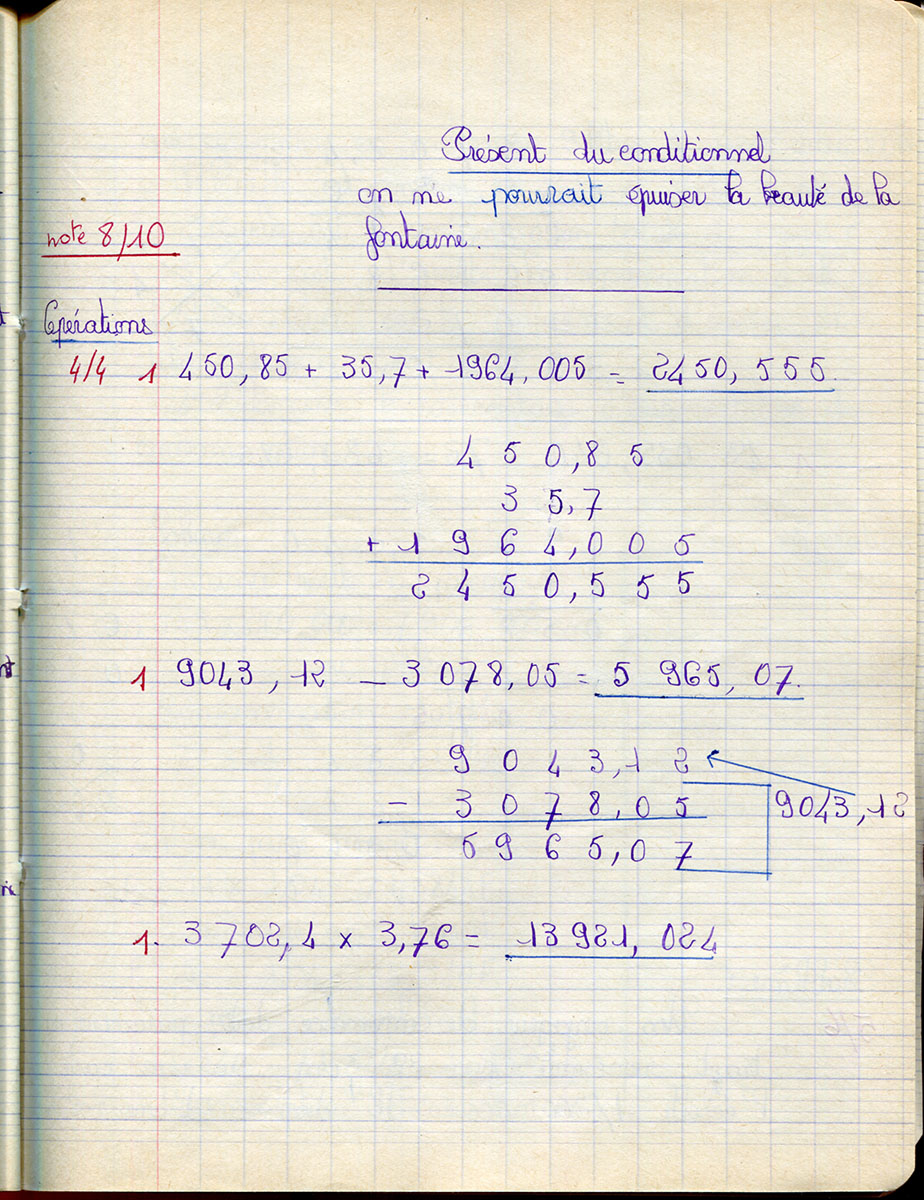 Présent du conditionnel
on ne pourrait épuiser la beauté de la
fontaine.
note 8/10
Opérations
4/4 1 450,85 + 35,7 + 1964,005 = 2450,555.
450,85
35,7
+ 1964,005
2450,555
1 9043,12 – 3 078,05 = 5 965,07.
9043,12
– 3078,05
9043,12
5965,07
1. 3 702,4 × 3,76 = 13 921,024